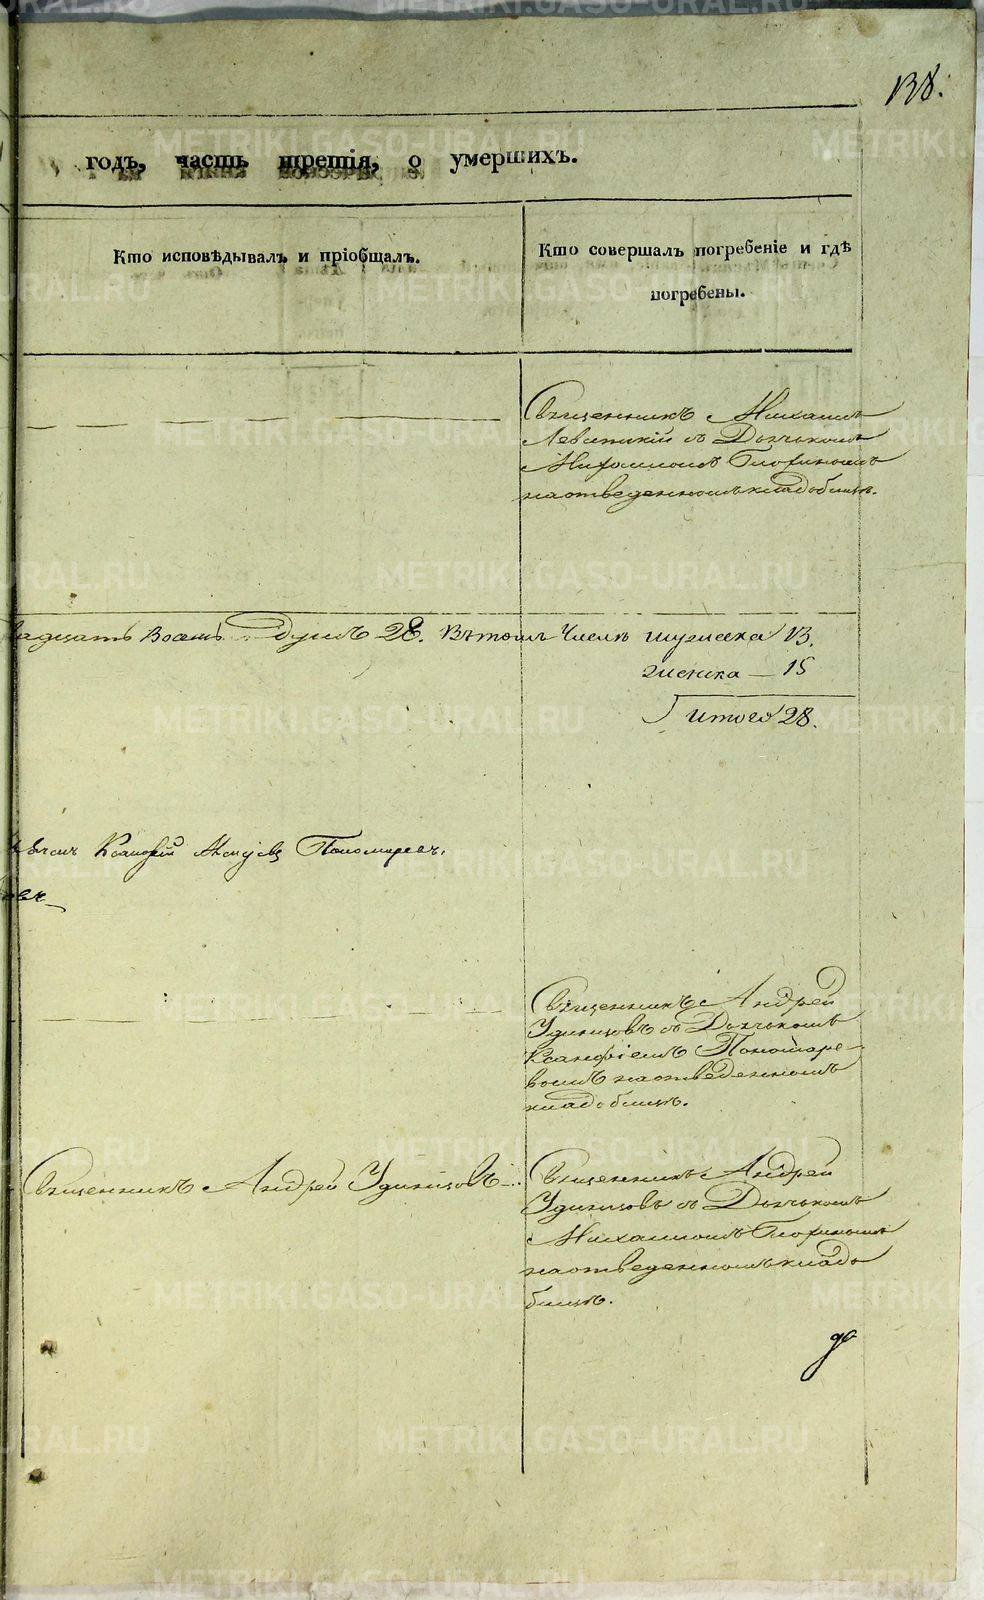 138.
годъ, часть третія, о умершихъ.
Кто исповѣдывалъ и пріобщалъ.
Кто совершалъ погребеніе и гдѣ
погребены.
Священникъ Михаилъ
Левитскій съ Дьячькомъ
на отведенномъ кладбищѣ.
восемь душъ 28. Въ томъ числѣ мужеска 13.
женска — 15
Итого 28.
Пономаревъ.
Священникъ Андрей
Удинцовъ съ Дьячькомъ
Ксанфіемъ Пономаре-
вомъ на отведенномъ
кладбищѣ.
Священникъ Андрей Удинцовъ
Священникъ Андрей
Удинцовъ съ Дьячькомъ
Михаиломъ
на отведенномъ кладь
бищѣ.
METRIKI.GASO-URAL.RU